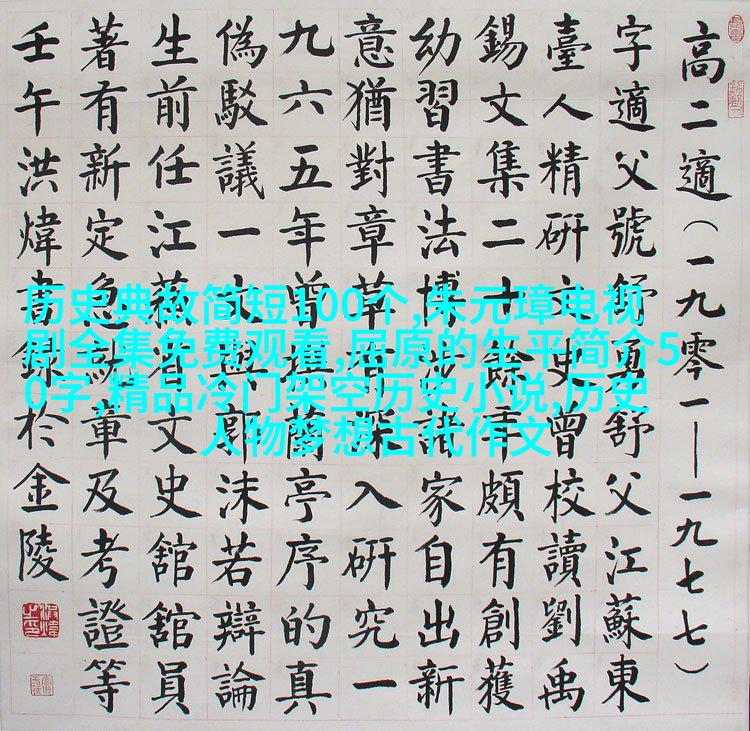 高二適（一九零一——一九七七）
字適父號舒勇舒父江蘇東
臺人精研文史曾校讀劉禹
錫文集二十餘年頗有創獲
幼習書法博涉諸家自出新
意猶對章草有深入研究一
九六五年曾撰蘭亭序的真
偽駁議一文與郭沫若辯論
生前任江蘇省文史舘舘員
著有新定急就章及考證等
壬午洪煒書錄於金陵
历史典故简短100个,朱元璋电视
剧全集免费观看,屈原的生平简介5
0字,精品冷门架空历史小说,历史
人物梦想古代作文